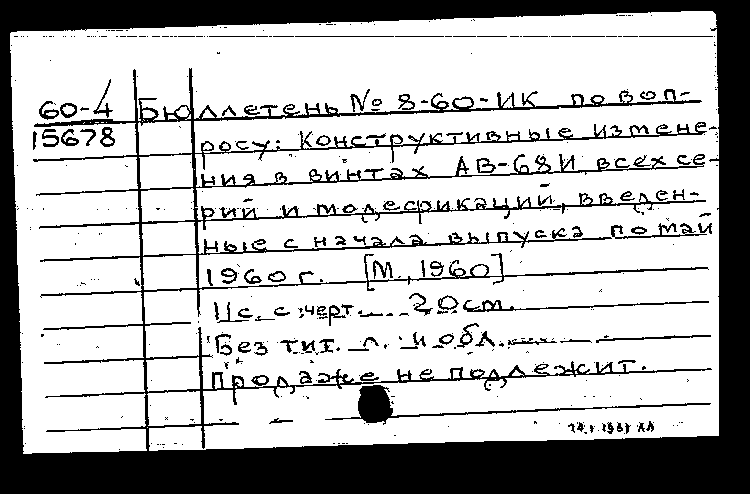 60-4 Бюллетень № 8-60-ИК по воп-
15678 росу: Конструктивные измене-
ния в винтах АВ-68И всех се-
рий и модификаций, введен-
ные с начала выпуска по май
1960 г. [М., 1960]
11 с. с черт. 20 см.
Без тит. л. и обл.
Продаже не подлежит.